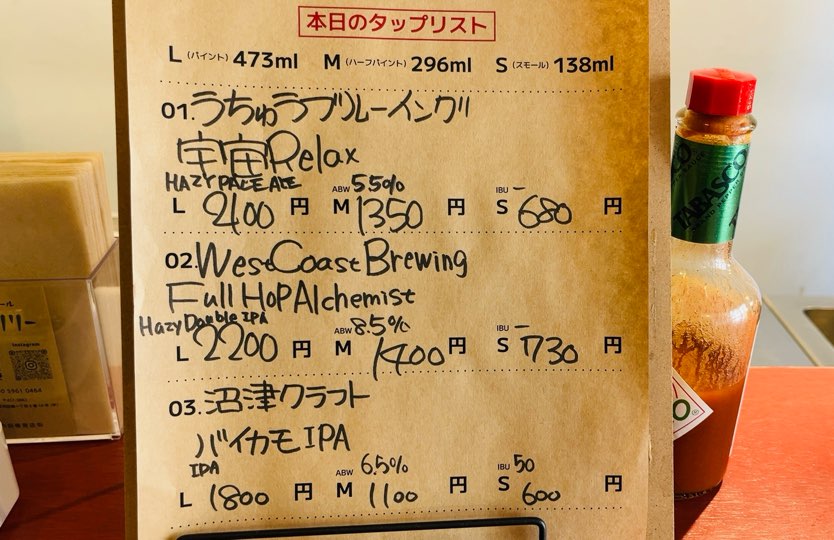 本日のタップリスト
L (パイント) 473ml M (ハーフパイント) 296ml S (スモール) 138ml
01. うちゅうブルーイング
宇宙Relax
HAZY PALE ALE ABW 5.5% IBU -
L 2400 円 M 1350 円 S 680 円
02. West Coast Brewing
Full Hop Alchemist
Hazy Double IPA ABW 8.5% IBU -
L 2200 円 M 1400 円 S 730 円
03. 沼津クラフト
バイカモIPA
IPA ABW 6.5% IBU 50
L 1800 円 M 1100 円 S 600 円
TABASCO
Instagram